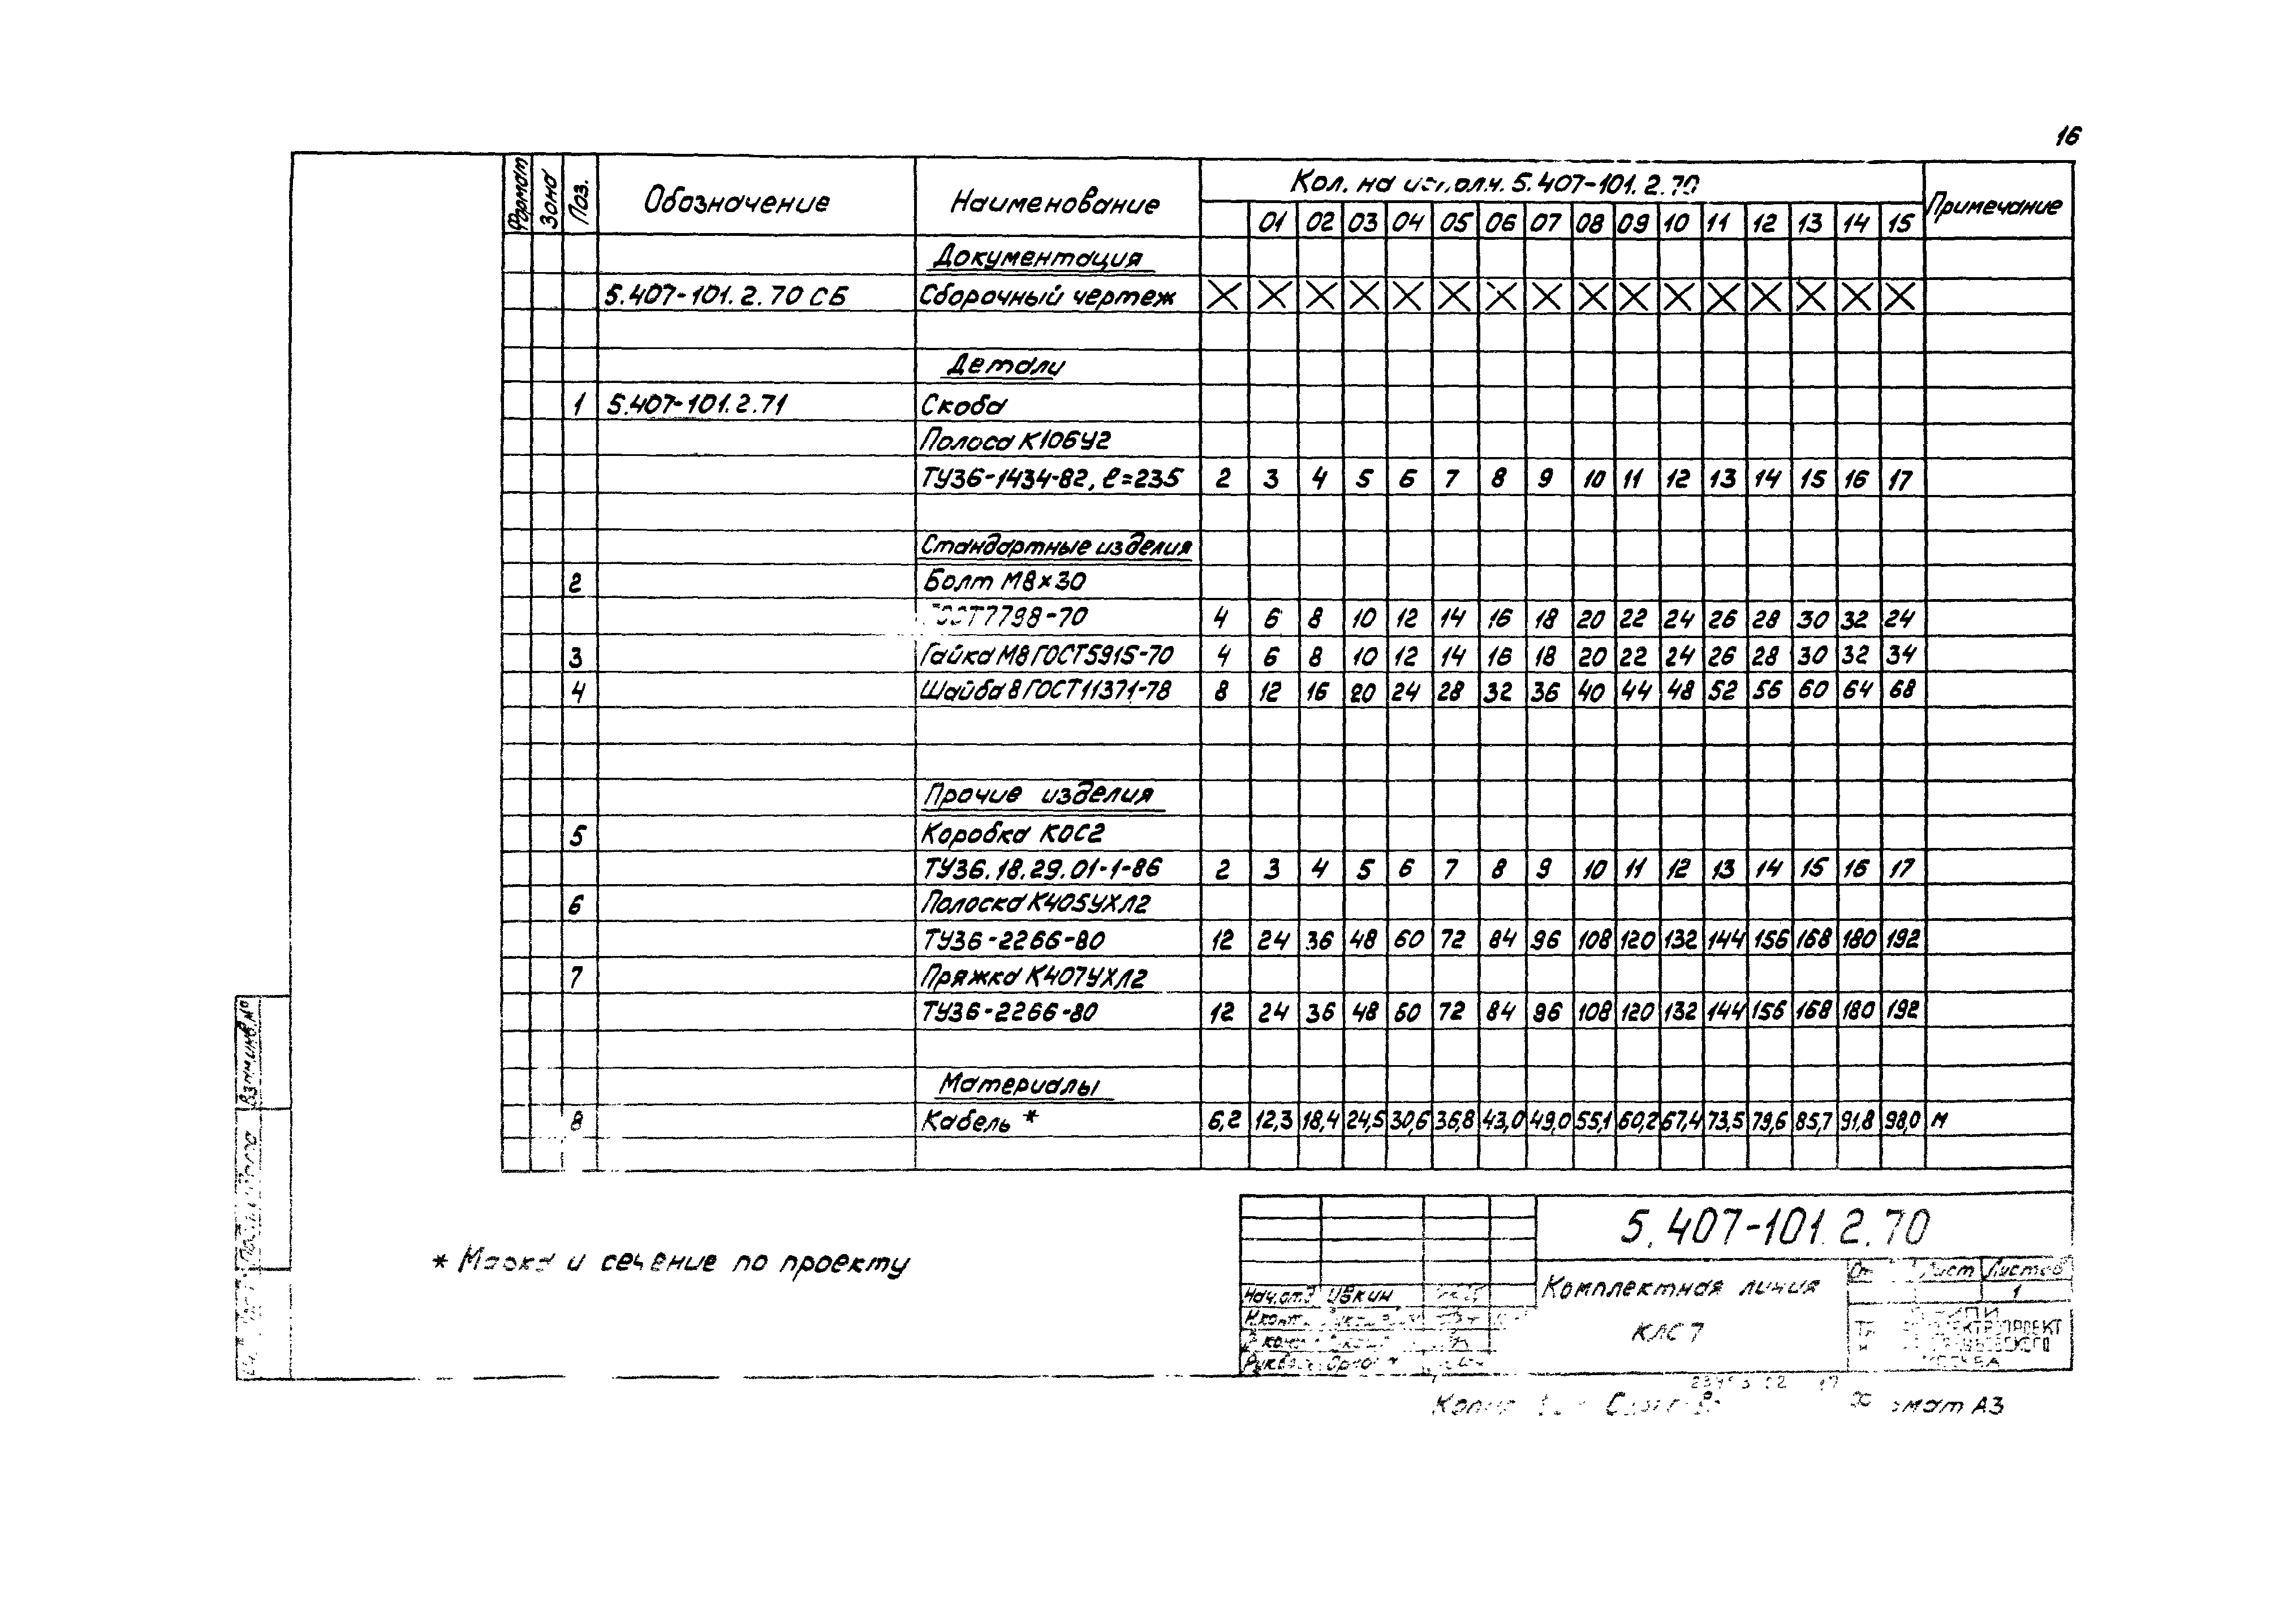 16
Формат Зона Поз. Обозначение Наименование Кол. на исполн. 5.407-101.2.70 Примечание
01 02 03 04 05 06 07 08 09 10 11 12 13 14 15
Документация
5.407-101.2.70 СБ Сборочный чертеж X X X X X X X X X X X X X X X X
Детали
1 5.407-101.2.71 Скоба
Полоса К106У2
ТУ36-1434-82, ℓ=235 2 3 4 5 6 7 8 9 10 11 12 13 14 15 16 17
Стандартные изделия
2 Болт М8×30
ГОСТ7798-70 4 6 8 10 12 14 16 18 20 22 24 26 28 30 32 24
3 Гайка М8 ГОСТ5915-70 4 6 8 10 12 14 16 18 20 22 24 26 28 30 32 34
4 Шайба 8 ГОСТ11371-78 8 12 16 20 24 28 32 36 40 44 48 52 56 60 64 68
Прочие изделия
5 Коробка КОС2
ТУ36.18.29.01-1-86 2 3 4 5 6 7 8 9 10 11 12 13 14 15 16 17
6 Полоска К405УХЛ2
ТУ36-2266-80 12 24 36 48 60 72 84 96 108 120 132 144 156 168 180 192
7 Пряжка К407УХЛ2
ТУ36-2266-80 12 24 36 48 60 72 84 96 108 120 132 144 156 168 180 192
Материалы
8 Кабель * 6,2 12,3 18,4 24,5 30,6 36,8 43,0 49,0 55,1 60,2 67,4 73,5 79,6 85,7 91,8 98,0 м
* Марка и сечение по проекту
Взам.инв.№
5.407-101.2.70
Комплектная линия
КЛС7
Лист Листов
1
Нач.отд. Ивкин
МОСКВА
Формат А3